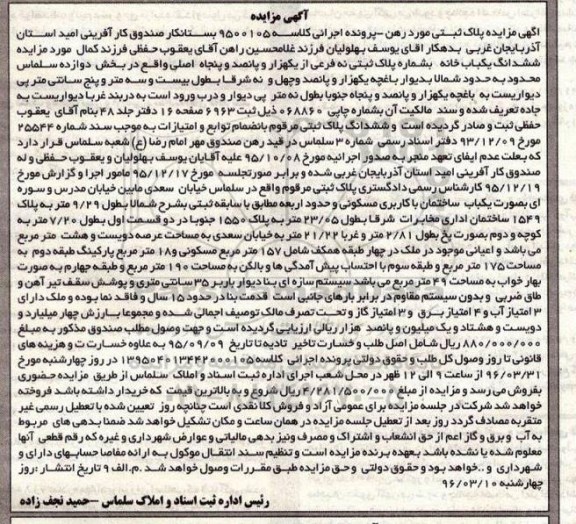 آگهی مزایده
اگهی مزایده پلاک ثبتی مورد رهن –پرونده اجرائی کلاسه ۹۵۰۰۱۰۵ بستانکار صندوق کار آفرینی امید استان
آذربایجان غربی بدهکار اقای یوسف بهلولیان فرزند غلامحسین راهن آقای یعقوب حفظی فرزند کمال مورد مزایده
ششدانگ یکباب خانه بشماره پلاک ثبتی نه فرعی از یکهزار و پانصد و پنجاه اصلی واقع در بخش دوازده سلماس
محدود به حدود شمالا بدیوار باغچه یکهزار و پانصد وچهل و نه شرقا بطول بیست و سه متر و پنج سانتی متر پی
دیواریست به باغچه یکهزار و پانصد و پنجاه جنوبا بطول نه متر پی دیوار و درب ورود است به دربند غربا دیواریست به
جاده تعریف شده و سند مالکیت آن بشماره چاپی ۰۶۸۸۶۰ ذیل ثبت ۶۹۶۳ صفحه ۱۶ دفتر جلد ۴۸ بنام آقای یعقوب
حفظی ثبت و صادر گردیده است و ششدانگ پلاک ثبتی مرقوم بانضمام توابع و امتیازات به موجب سند شماره ۲۵۵۴۴
مورخ ۹۳/۱۲/۰۹ دفتر اسناد رسمی شماره ۳ سلماس در قید رهن صندوق مهر امام رضا (ع) شعبه سلماس قرار دارد
که بعلت عدم ایفای تعهد منجر به صدور اجرائیه مورخ ۹۵/۱۰/۰۸ علیه آقایان یوسف بهلولیان و یعقوب حفظی و له
صندوق کار آفرینی امید استان آذربایجان غربی شده و برابر صورتجلسه مورخ ۹۵/۱۲/۱۷ مامور اجرا و گزارش مورخ
۹۵/۱۲/۱۹ کارشناس رسمی دادگستری پلاک ثبتی مرقوم واقع در سلماس خیابان سعدی مابین خیابان مدرس و سوره
ای بصورت یکباب ساختمان با کاربری مسکونی و حدود اربعه مطابق با سابقه ثبتی بشرح شمالا بطول ۹/۲۹ متر به پلاک
۱۵۴۹ ساختمان اداری مخابرات شرقا بطول ۲۳/۰۵ متر به پلاک ۱۵۵۰ جنوبا در دو قسمت اول بطول ۷/۲۰ متر به
کوچه و دوم بصورت پخ بطول ۲/۸۱ متر و غربا ۲۱/۲۲ متر به خیابان سعدی به مساحت عرصه دویست و هشت متر مربع
می باشد و اعیانی موجود در ملک در چهار طبقه همکف شامل ۱۵۷ متر مربع مسکونی و۱۸ متر مربع پارکینگ طبقه دوم به
مساحت ۱۷۵ متر مربع و طبقه سوم با احتساب پیش آمدگی ها و بالکن به مساحت ۱۹۰ متر مربع و طبقه چهارم به صورت
بهار خواب به مساحت ۴۹ متر مربع می باشد سیستم سازه ای بنا دیوار باربر ۳۵ سانتی متری و پوشش سقف تیر آهن و
طاق ضربی و بدون سیستم مقاوم در برابر بارهای جانبی است قدمت بنا در حدود ۱۵ سال و فاقد نما بوده و ملک دارای
۳ امتیاز آب و ۴ امتیاز برق و ۳ امتیاز گاز و تحت تصرف مالک توصیف اجمالی شده و مجموعا بارزش چهار میلیارد و
دویست و هشتاد و یک میلیون و پانصد هزار ریالی ارزیابی گردیده است و جهت وصول مطلب صندوق مذکور به مبلغ
۸۸۰/۰۰۰/۰۰۰ ریال شامل اصل طلب و خسارت تاخیر تادیه تا تاریخ ۹۵/۰۹/۰۹ به علاوه خسارت و هزینه های
قانونی تا روز وصول کل طلب و حقوق دولتی پرونده اجرائی کلاسه ۱۳۹۵۰۴۰۱۳۴۴۲۰۰۰۱۰۵ در روز چهارشنبه مورخ
۹۶/۰۳/۳۱ از ساعت ۹ الی ۱۲ ظهر در محل شعب اجرای اداره ثبت اسناد و املاک سلماس از طریق مزایده حضوری
بفروش می رسد و مزایده از مبلغ ۴/۲۸۱/۵۰۰/۰۰۰ ریال شروع و به بالاترین قیمت که خریدار داشته باشد فروخته
خواهد شد شرکت در جلسه مزایده برای عمومی آزاد و فروش کلا نقدی است چنانچه روز تعیین شده با تعطیل رسمی غیر
متقربه مصادف گردد روز بعد از تعطیل جلسه مزایده در همان ساعت و مکان تشکیل خواهد شد ضمنا بدهی های مربوط
به آب و برق و گاز اعم از حق انشعاب و اشتراک و مصرف ونیز بدهی مالیاتی و عوارض شهرداری و غیره که رقم قطعی آنها
معلوم شده یا نشده باشد بعهده برنده مزایده است و تنظیم سند انتقال موکول به ارائه مفاصا حسابهای دارای و
شهرداری و ..خواهد بود و حقوق دولتی و حق مزایده طبق مقررات وصول خواهد شد .م.الف ۹ تاریخ انتشار :روز
چهارشنبه ۹۶/۰۳/۱۰
رئیس اداره ثبت اسناد و املاک سلماس –حمید نجف زاده